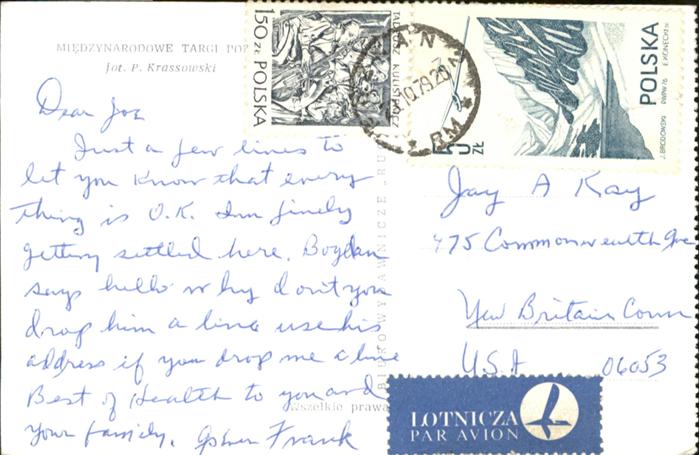 MIĘDZYNARODOWE TARGI POZ
fot. P. Krassowski
1,50 ZŁ POLSKA
TADEUSZ KULISIEWICZ
POLSKA
PWPW 76
E. KONECKI
J. BRODOWSKI
ZŁ
10.79.20
BM
Dear Joe
Just a few lines to
let you know that every
thing is O.K. Im finely
getting settled here. Bogdan
says hello & why dont you
drop him a line use his
address if you drop me a line
Best of Health to you and
your family. Frank
Jay A Kay
475 Commonwealth Ave
New Britain Conn
U.S.A 06053
BIURO WYDAWNICZE „RU
wszelkie prawa
LOTNICZA
PAR AVION